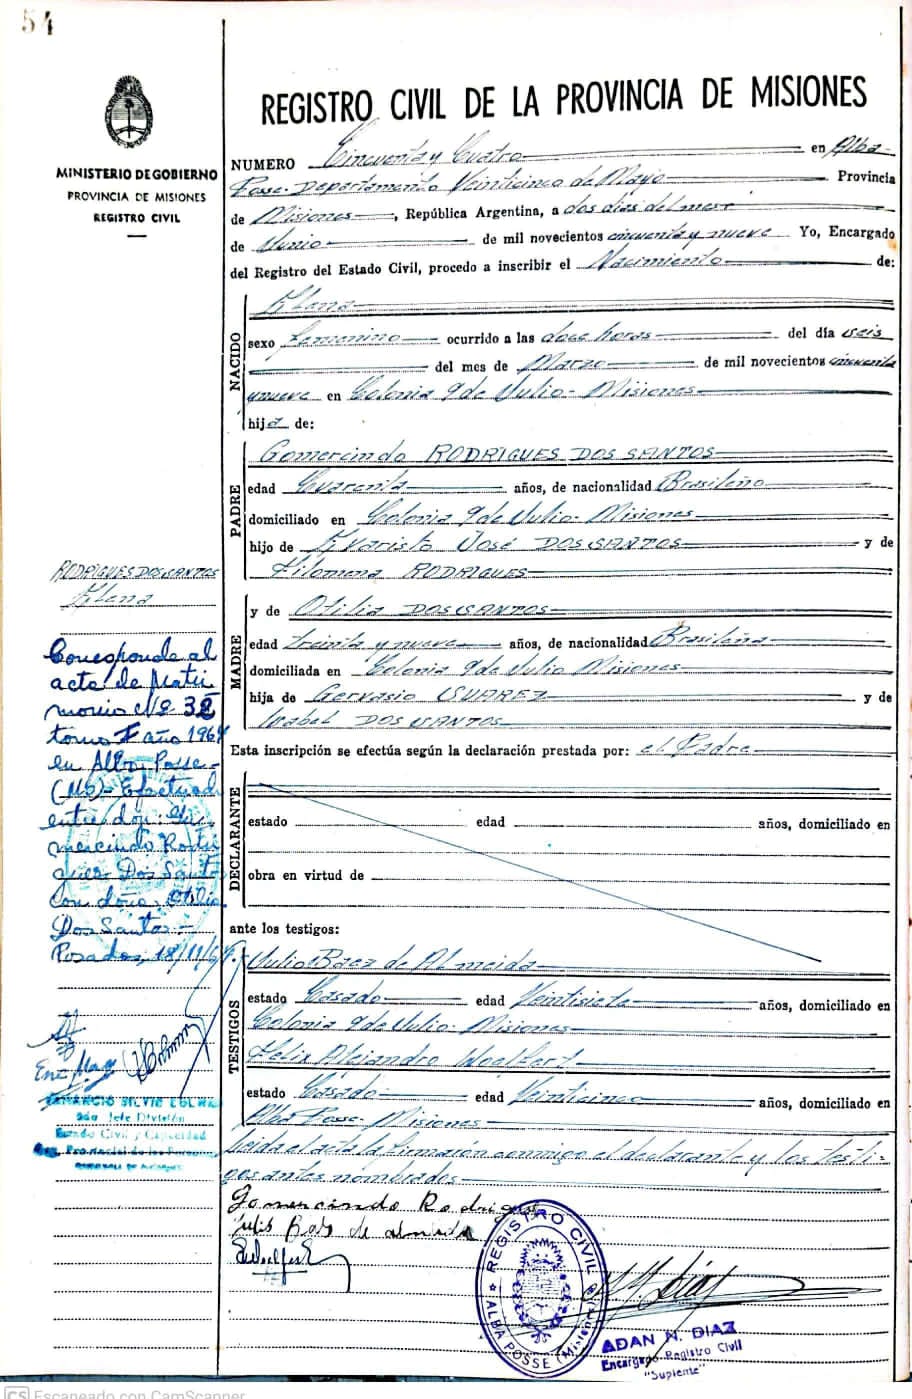 54
MINISTERIO DE GOBIERNO
PROVINCIA DE MISIONES
REGISTRO CIVIL
REGISTRO CIVIL DE LA PROVINCIA DE MISIONES
NUMERO Cincuenta y Cuatro en Alba
Posse- Departamento Veinticinco de Mayo Provincia
de Misiones, República Argentina, a dos dias del mes
de Junio de mil novecientos cincuenta y nueve Yo, Encargado
del Registro del Estado Civil, procedo a inscribir el Nacimiento de:
NACIDO
Elena
sexo femenino ocurrido a las doce horas del día seis
del mes de Marzo de mil novecientos cincuenta
y nueve en Colonia 9 de Julio- Misiones
hija de:
PADRE
Gomercindo RODRIGUES DOS SANTOS
edad Cuarenta años, de nacionalidad Brasileño
domiciliado en Colonia 9 de Julio- Misiones
hijo de Evaristo José DOS SANTOS y de
Filomena RODRIGUES
MADRE
y de Otilia DOS SANTOS
edad treinta y nueve años, de nacionalidad Brasileña
domiciliada en Colonia 9 de Julio Misiones
hija de Gervasio SUAREZ y de
Isabel DOS SANTOS
Esta inscripción se efectúa según la declaración prestada por: el Padre
DECLARANTE
estado edad años, domiciliado en
obra en virtud de
ante los testigos:
TESTIGOS
Julio Baez de Almeida
estado Casado edad Veintisiete años, domiciliado en
Colonia 9 de Julio- Misiones
Felix Alejandro
estado Casado edad Veinticinco años, domiciliado en
Alba Posse- Misiones
Leida el acta la firmaron conmigo el declarante y los testi-
gos antes nombrados
Gomercindo Rodrigues
de almeida
RODRIGUES DOS SANTOS
Elena
Corresponde al
acta de Matri
monio Nº 32
tomo I año 196
en Alba Posse-
(Ms)- Efectuad
entre don: Gu
mercindo Rodri
guez Dos Santo
con doña: Otilia
Dos Santos-
Posadas, 18/11/69.
SILVIO
2do Jefe División
Estado Civil y Capacidad
Provincial de las Personas
REGISTRO CIVIL
ALBA POSSE (Misiones)
ADAN N. DIAZ
Encargado Registro Civil
"Suplente"
CS Escaneado con CamScanner